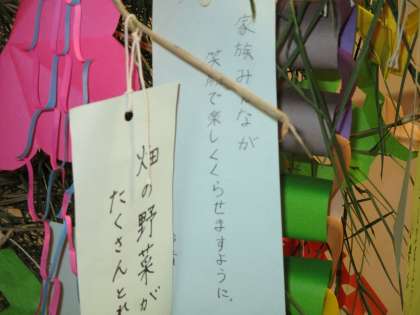 家族みんなが
笑顔で楽しくくらせますように、
畑の野菜が
たくさんとれ